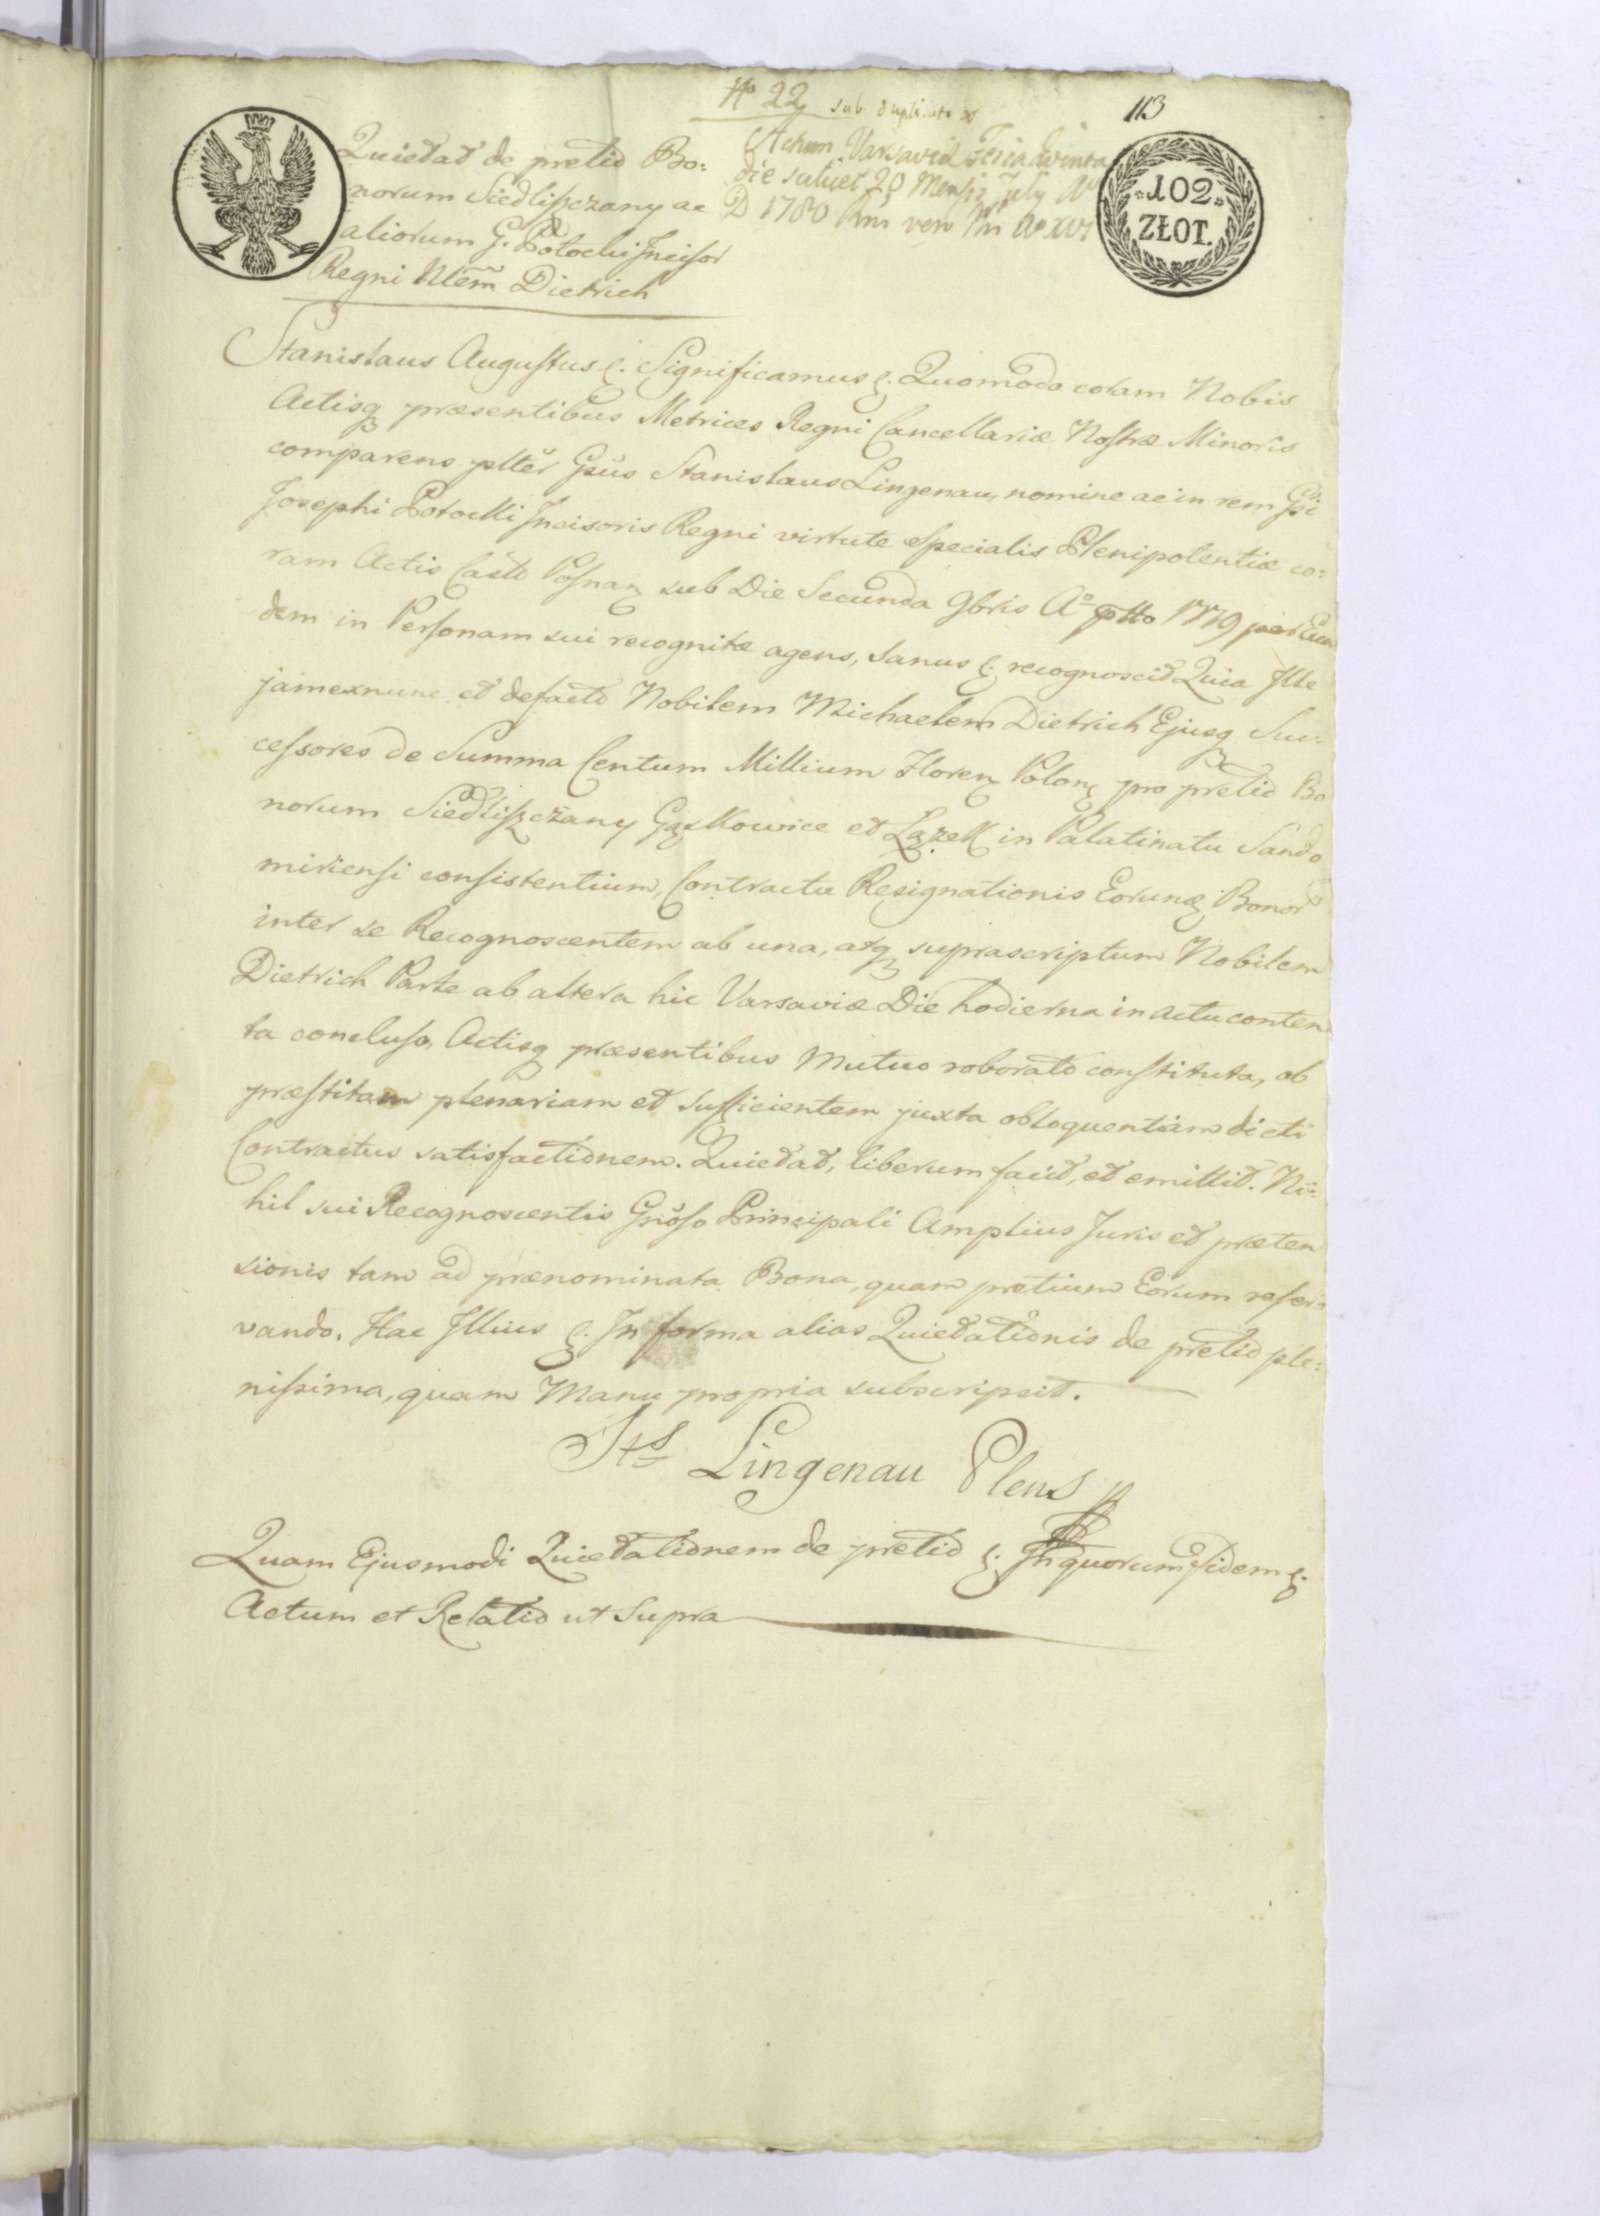 No 22 sub duplicato
113
Quietat de pretio Bo-
norum Siedliszczany ac
aliorum G. Potocki Incisor
Regni Ntem Dietrich
Actum Varsaviae Feria Quinta
die scilicet 20 Mensis July Ao
D 1780 Rni vero Ni Ao XVI
102
ZŁOT.
Stanislaus Augustus &. Significamus &. Quomodo coram Nobis
Actisq praesentibus Metrices Regni Cancellariae Nostrae Minoris
comparens pltter Gsus Stanislaus Lingenau, nomine ac in rem Gsi
Josephi Potocki Incisoris Regni virtute Specialis Plenipotentiae co-
ram Actis Castr Posnan sub Die Secunda 9bris Ao 1779 per Eun
dem in Personam sui recognitae agens, sanus &. recognoscit Quia Ille
jam ex nunc et de facto Nobilem Michaelem Dietrich Ejusq Suc-
cessores de Summa Centum Millium Floren Polon pro pretio Bo
norum Siedliszczany Gąskowice et Łążek in Palatinatu Sando
miriensi consistentium, Contractu Resignationis Eorund Bonor
inter se Recognoscentem ab una, atq suprascriptum Nobilem
Dietrich Parte ab altera hic Varsaviae Die hodierna in actu conten
ta concluso, Actisq praesentibus Mutuo roborato constituta, ob
praestitam plenariam et sufficientem juxta obloquentiam dicti
Contractus satisfactionem. Quietat, liberum facit, et emittit. Ni-
hil sui Recognoscentis Gnoso Principali Amplius Juris et praeten
sionis tam ad praenominata Bona, quam pretium Eorum reser-
vando. Hac Illius &. In forma alias Quietationis de pretio ple-
nissima, quam Manu propria subscripsit.
Sts Lingenau Plens
Quam Ejusmodi Quietationem de pretio &. In quorum Fidem &.
Actum et Relatio ut Supra